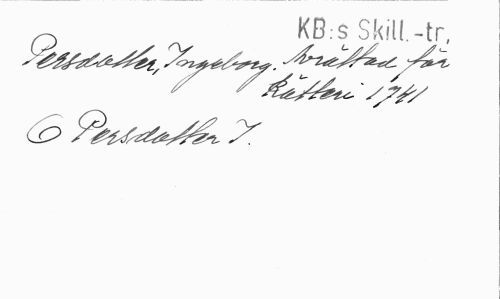 KB:s Skill.-tr.
Persdotter, Ingeborg. Avrättad för
Kätteri 1741
Persdotter I.